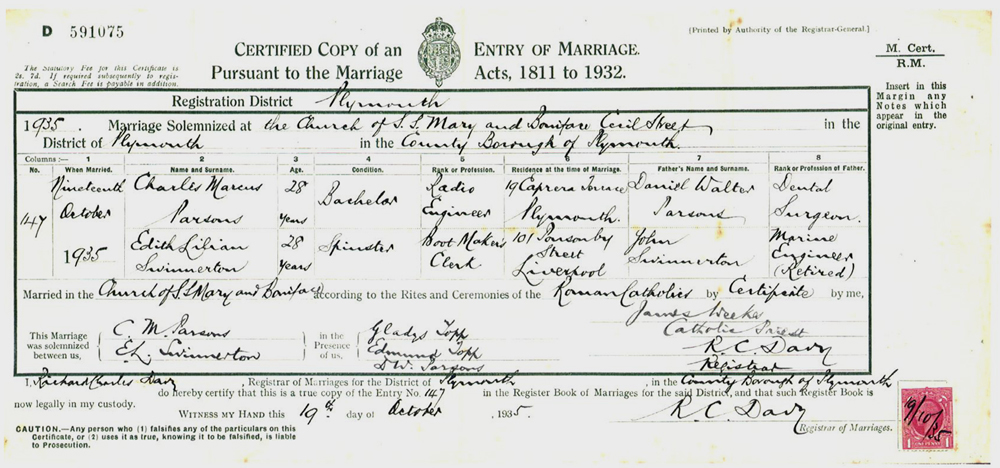 D 591075
[Printed by Authority of the Registrar-General.]
CERTIFIED COPY of an ENTRY OF MARRIAGE.
Pursuant to the Marriage Acts, 1811 to 1932.
The Statutory Fee for this Certificate is
2s. 7d. If required subsequently to regis-
tration, a Search Fee is payable in addition.
M. Cert.
R.M.
Insert in this
Margin any
Notes which
appear in the
original entry.
Registration District Plymouth
1935. Marriage Solemnized at the Church of S.S. Mary and Boniface Cecil Street in the
District of Plymouth in the County Borough of Plymouth.
Columns :— 1 2 3 4 5 6 7 8
No. When Married. Name and Surname. Age. Condition. Rank or Profession. Residence at the time of Marriage. Father's Name and Surname. Rank or Profession of Father.
147 Nineteenth October 1935
Charles Marcus Parsons 28 years Bachelor Radio Engineer 19 Caprera Terrace Plymouth. Daniel Walter Parsons Dental Surgeon.
Edith Lilian Swinnerton 28 years Spinster Boot Maker's Clerk 101 Ponsonby Street Liverpool John Swinnerton Marine Engineer (Retired)
Married in the Church of S.S Mary and Boniface according to the Rites and Ceremonies of the Roman Catholics by Certificate by me,
James Weekes
Catholic Priest
R C Davy
Registrar
This Marriage
was solemnized
between us,
C. M. Parsons
E L. Swinnerton
in the
Presence
of us,
Gladys Topp
Edmund Topp
D W. Parsons
I, Richard Charles Davy, Registrar of Marriages for the District of Plymouth, in the County Borough of Plymouth
do hereby certify that this is a true copy of the Entry No. 147 in the Register Book of Marriages for the said District, and that such Register Book is
now legally in my custody.
WITNESS MY HAND this 19th day of October, 1935.
R. C. Davy
Registrar of Marriages.
CAUTION.—Any person who (1) falsifies any of the particulars on this
Certificate, or (2) uses it as true, knowing it to be falsified, is liable
to Prosecution.
19/10/35
1 1